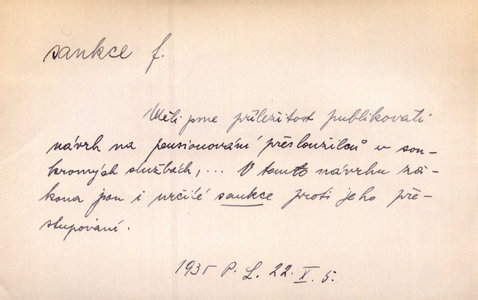 sankce f.
Měli jsme příležitost publikovati
návrh na pensionování přesloužilců v sou-
kromých službách,... V tomto návrhu zá-
kona jsou i určité sankce proti jeho pře-
stupování.
1935 P. L. 22. X. 5.